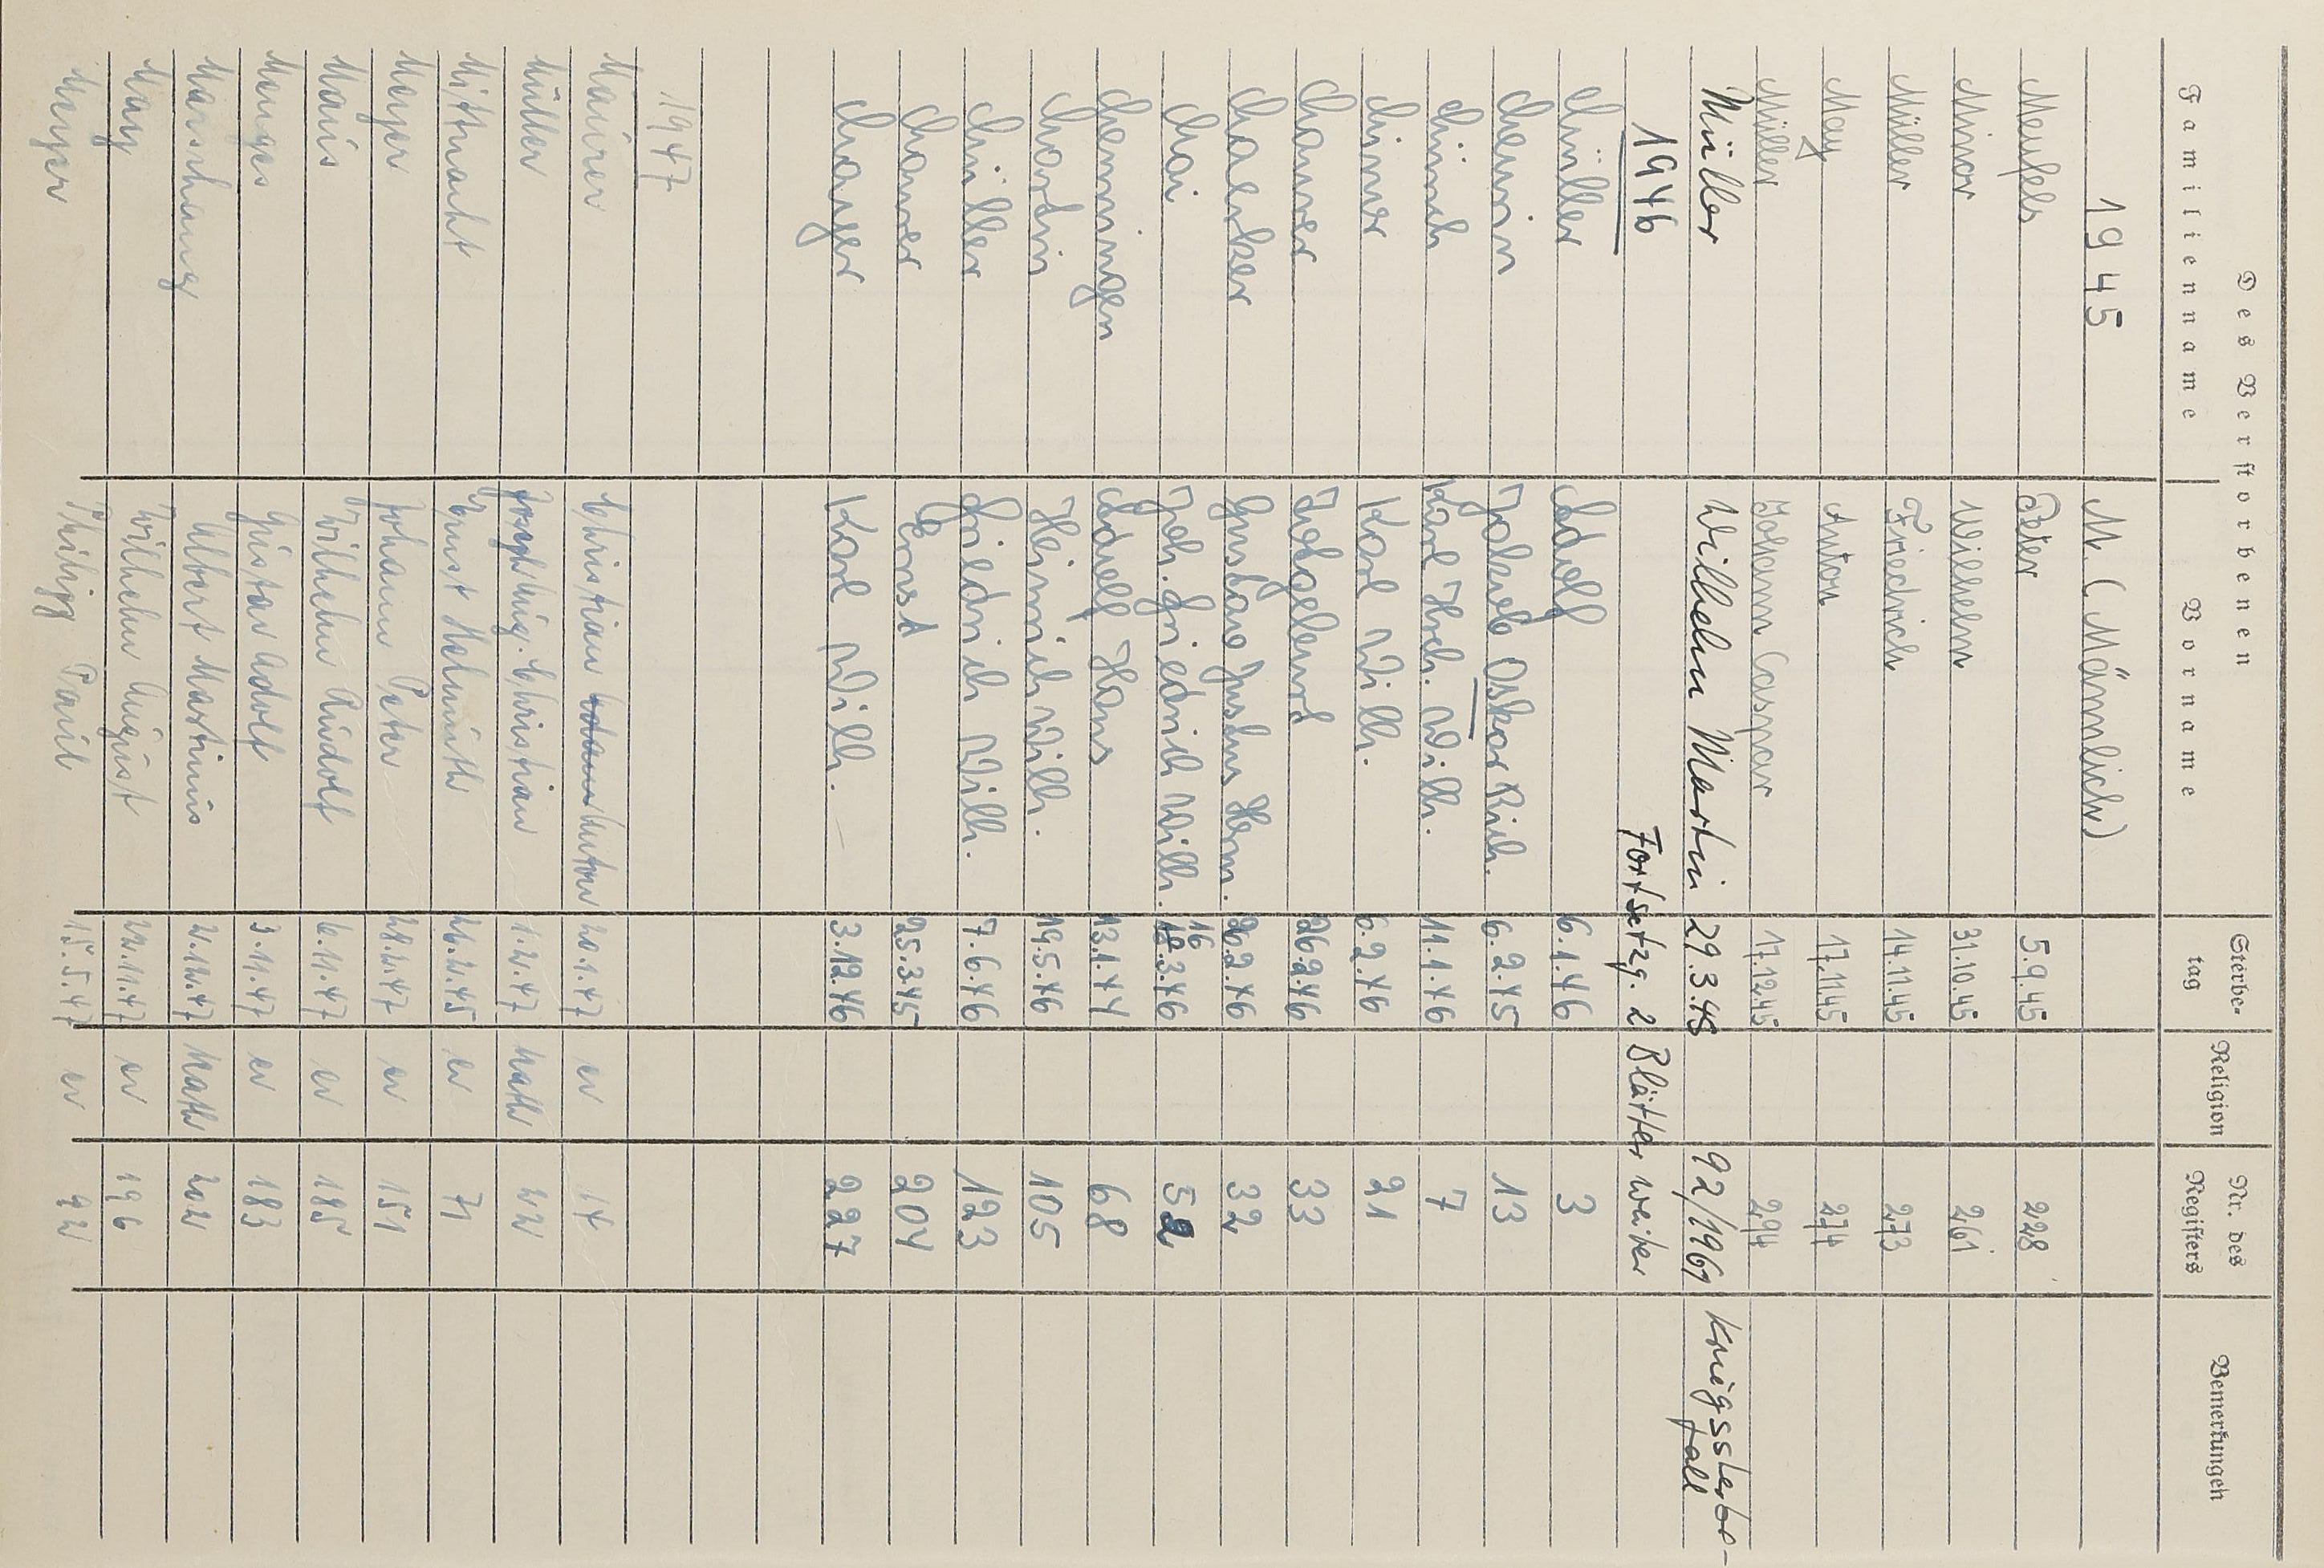 Des Verstorbenen
Familienname Vorname Sterbetag Religion Nr. des Registers Bemerkungen
1945 M. (Männlich)
Menfels Peter 5.9.45 228
Minor Wilhelm 31.10.45 261
Müller Friedrich 14.11.45 273
May Anton 17.11.45 274
Müller Johann Caspar 17.12.45 294
Müller Wilhelm Martin 29.3.45 92/1961 Kriegssterbe-
fall
1946 Fortsetzg. 2 Blätter weiter
Müller Adolf 6.1.46 3
Jakob Oskar Rich. 6.2.45 13
Münch Karl Hrch. Wilh. 11.1.46 7
Karl Wilh. 6.2.46 21
Mauer Totgeburt 26.2.46 33
Maerker Gustav Justus Herm. 26.2.46 32
Mai Joh. Friedrich Wilh. 16.3.46 52
Memmingen Adolf Hans 13.1.44 68
Martin Heinrich Wilh. 19.5.46 105
Müller Friedrich Wilh. 7.6.46 123
Ernst 25.3.45 204
Mayer Karl Wilh. 3.12.46 227
1947
Maurer Christian Anton 20.1.47 ev 14
Müller Joseph Christian 1.2.47 kath 22
Mittnacht Ernst Helmuth 26.2.45 ev 71
Meyer Johann Peter 28.2.47 ev 151
Maus Wilhelm Rudolf 6.11.47 ev 185
Menges Gustav Adolf 3.11.47 ev 183
Marshang Albert Martinus 2.12.47 kath 202
May Wilhelm August 22.11.47 ev 196
Meyer Philipp Paul 15.5.47 ev 92